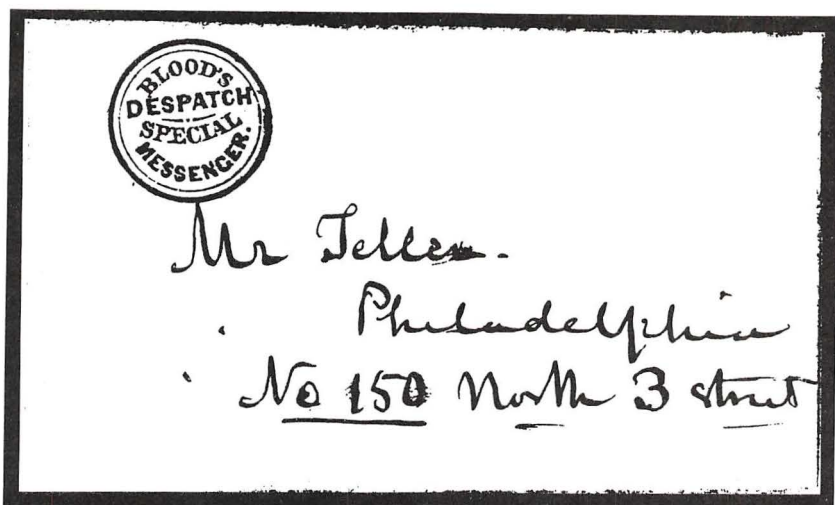 BLOOD'S
DESPATCH
SPECIAL
MESSENGER.
Mr Teller.
Philadelphia
No 150 North 3 street